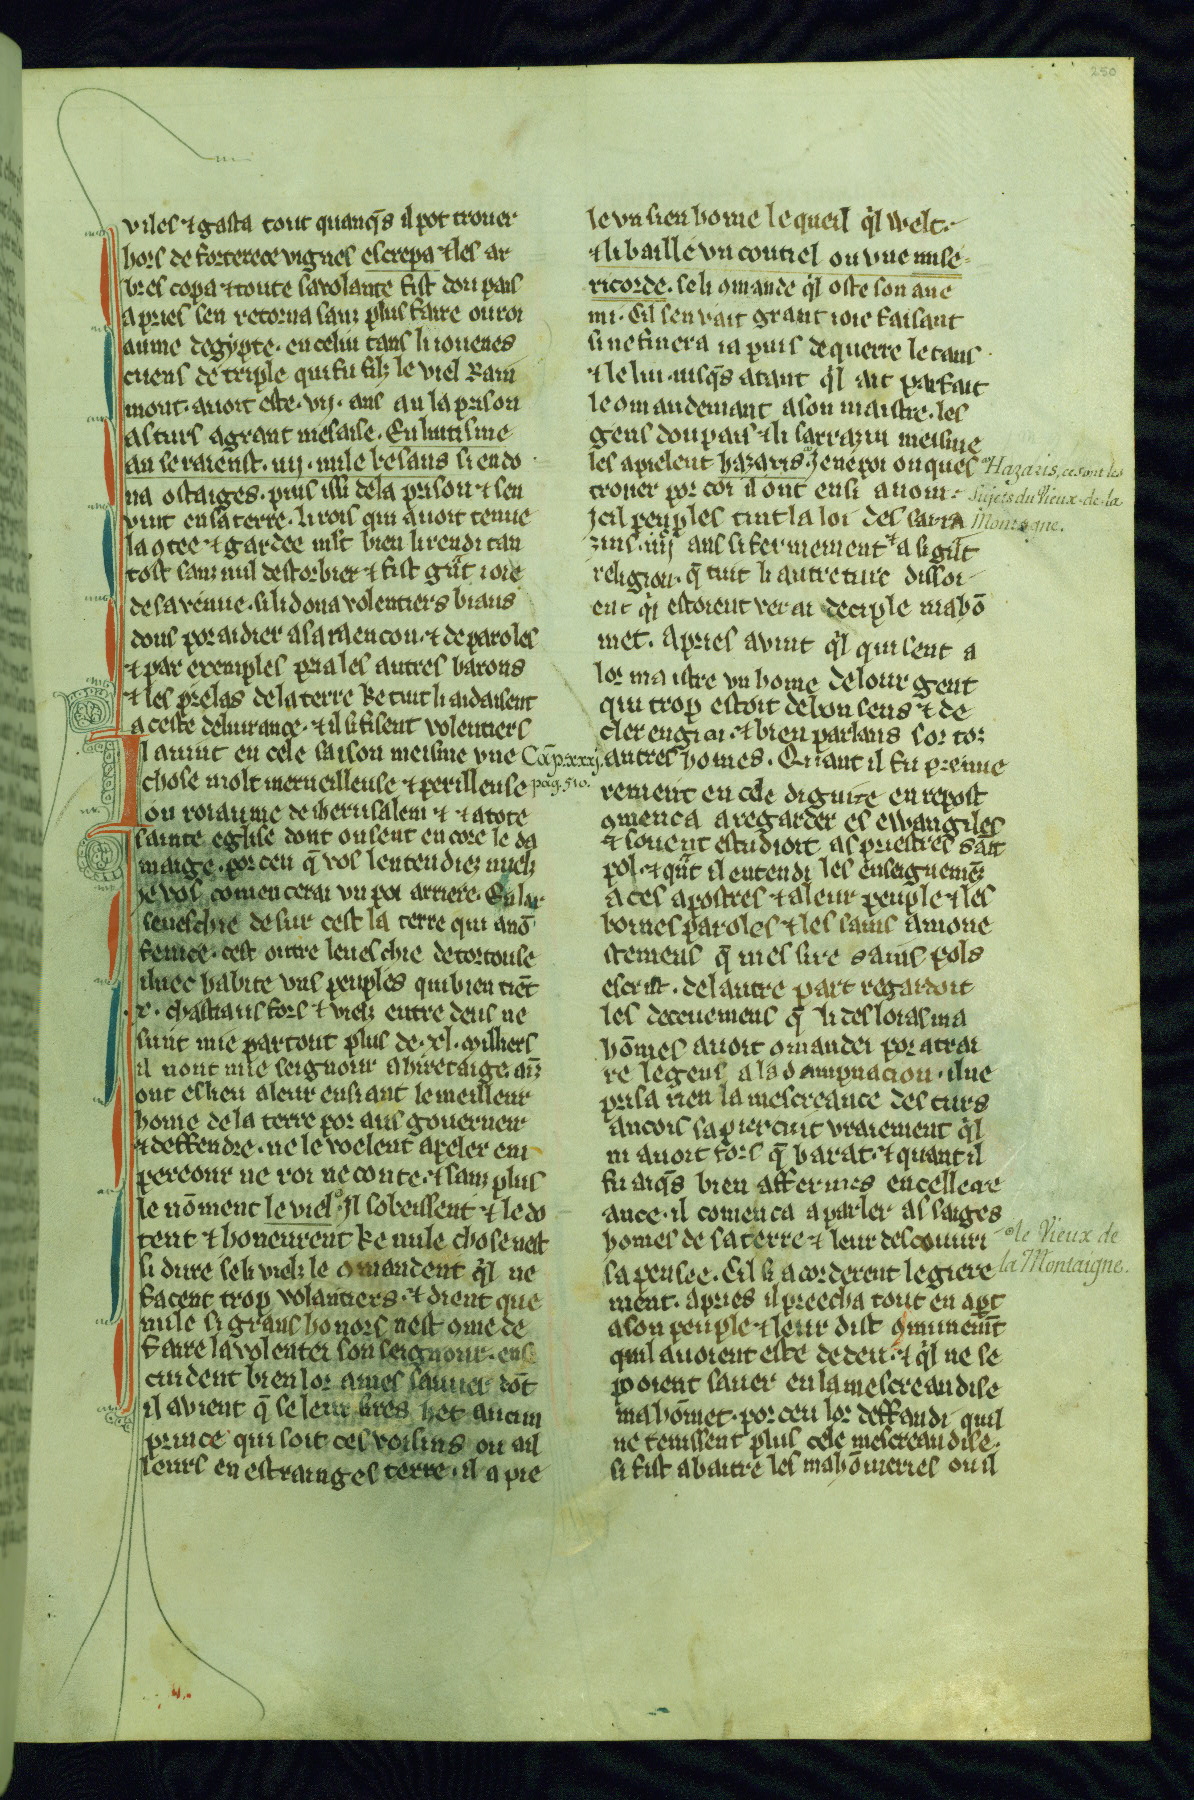 250
viles ⁊ gasta tout quanq̃s il pot trouer
hors de forterece vignes escrepa ⁊ les ar
bres copa ⁊ toute sa volante fist dou pais
apries sen retorna sanz plus faire ou roi
aume degypte. en celui tans li iouenes
cuens de triple qui fu filz le viel Rain
mont. auoit este .vij. ans an la prison
as turs a grant mesaise. En luitisme
an se raienst .iiij. mile besans si en do
na ostaiges. puis issi de la prison ⁊ sen
vint en sa terre. li rois qui auoit tenue
la ꝯtee ⁊ gardee mlt bien li rendi tan
tost sanz nul destorbier ⁊ fist gñt ioie
de sa venue. si li dona volentiers biaus
dons por aidier a sa raencon. ⁊ de paroles
⁊ par exemples pria les autres barons
⁊ les prelas de la terre ke tuit li aidaisent
a ceste deliurance. ⁊ il si fisent volentiers
Il auint en cele saison meisme vne
Cap. xxxj.
chose molt merueilleuse ⁊ perilleuse
pag. 510.
ou roiaume de iherusalem ⁊ ⁊ a tote
sainte eglise dont on sent encore le da
maige. por ceu q̃ vos lentendiez mielz
je vos comencerai vn poi arriere. En lar
seueschie de sur cest la terre qui a nõ
fenice. cest outre leueschie de tortouse
iluec habite vns peuples qui bien tiẽt
.x. chastiaus fors ⁊ vielz entre deus ne
sunt mie partout plus de .xl. milliers
il nont mie seignour a hiretaige. ainz
ont eslieu a leur ensiant le meilleur
home de la terre por aus gouverneir
⁊ deffendre. ne le voelent apeler em
pereour ne roi ne conte. ⁊ sanz plus
le nõment le viel. Il sobeissent ⁊ le do
tent ⁊ honeurent ke nule chose nest
si dure se li vielz le ꝯmandent q̃l ne
facent trop volantiers. ⁊ dient que
nule si grans honors nest ome de
faire la volentei son seignour. ens
cuident bien lor ames sauuer dõt
il avient q̃ se leur sires het aucun
prince qui soit ces voisins ou ail
leurs en estrainges terre. il apie
le vn sien home lequeil q̃l welt.
⁊ li baille vn coutiel ou vne mise
ricorde. se li ꝯmande q̃l oste son ane
mi. Cil sen vait grant ioie faisant
si ne finera ia puis de querre le tans
⁊ le liu. iusq̃s atant q̃l ait parfait
le ꝯmandemant a son maistre. les
gens dou pais ⁊ li sarrazin meisme
les apielent hazaris. Je ne poi onques
Hazaris, ce sont les
trouer por coi il ont ensi a nom.
Sujets du Vieux-de-la
zcil peuples tint la loi des sarra
Montagne.
zins .iiijc ans si fermement ⁊ a si gñt
religion. q̃ tuit li autre ture dissoi
ent q̃l estoient verai deciple mahõ
met. Apries avint q̃l quisent a
lor maistre vn home de lour gent
qui trop estoit de bon sens ⁊ de
cler engin. ⁊ bien parlans sor tor
autres homes. Quant il fu premie
rement en cele dignite en repost
ꝯmenca a regarder es ewangiles
⁊ souent estudioit as priestres sãit
pol. ⁊ qñt il entendi les enseignemẽz
a ces apostres ⁊ a leur peuple ⁊ les
bonnes paroles ⁊ les sains amone
stemens q̃ mes sire sains pols
escrist. de lautre part regardoit
les deceuemens q̃ li desloias ma
hõmes auoit ꝯmandei por atrai
re le gens a la dampnacion. il ne
prisa rien la mescreance des turs
ancois sapiercuit vraiement q̃l
ni auoit fors q̃ barat. ⁊ quant il
fu aiq̃s bien affermes en celle cre
ance. il comenca a parler as saiges
homes de sa terre ⁊ leur descouuri
le Vieux de
sa pensee. Cil si acorderent legiere
la Montaigne.
ment. apries il preecha tout en apt
a son peuple ⁊ leur dist ꝯmunemt̃
quil auoient este de deu. ⁊ q̃l ne se
pooient sauer en la mescreandise
mahõmet. por ceu lor deffandi quil
ne tenissent plus cele mescreandise.
si fist abattre les mahomeries ou il